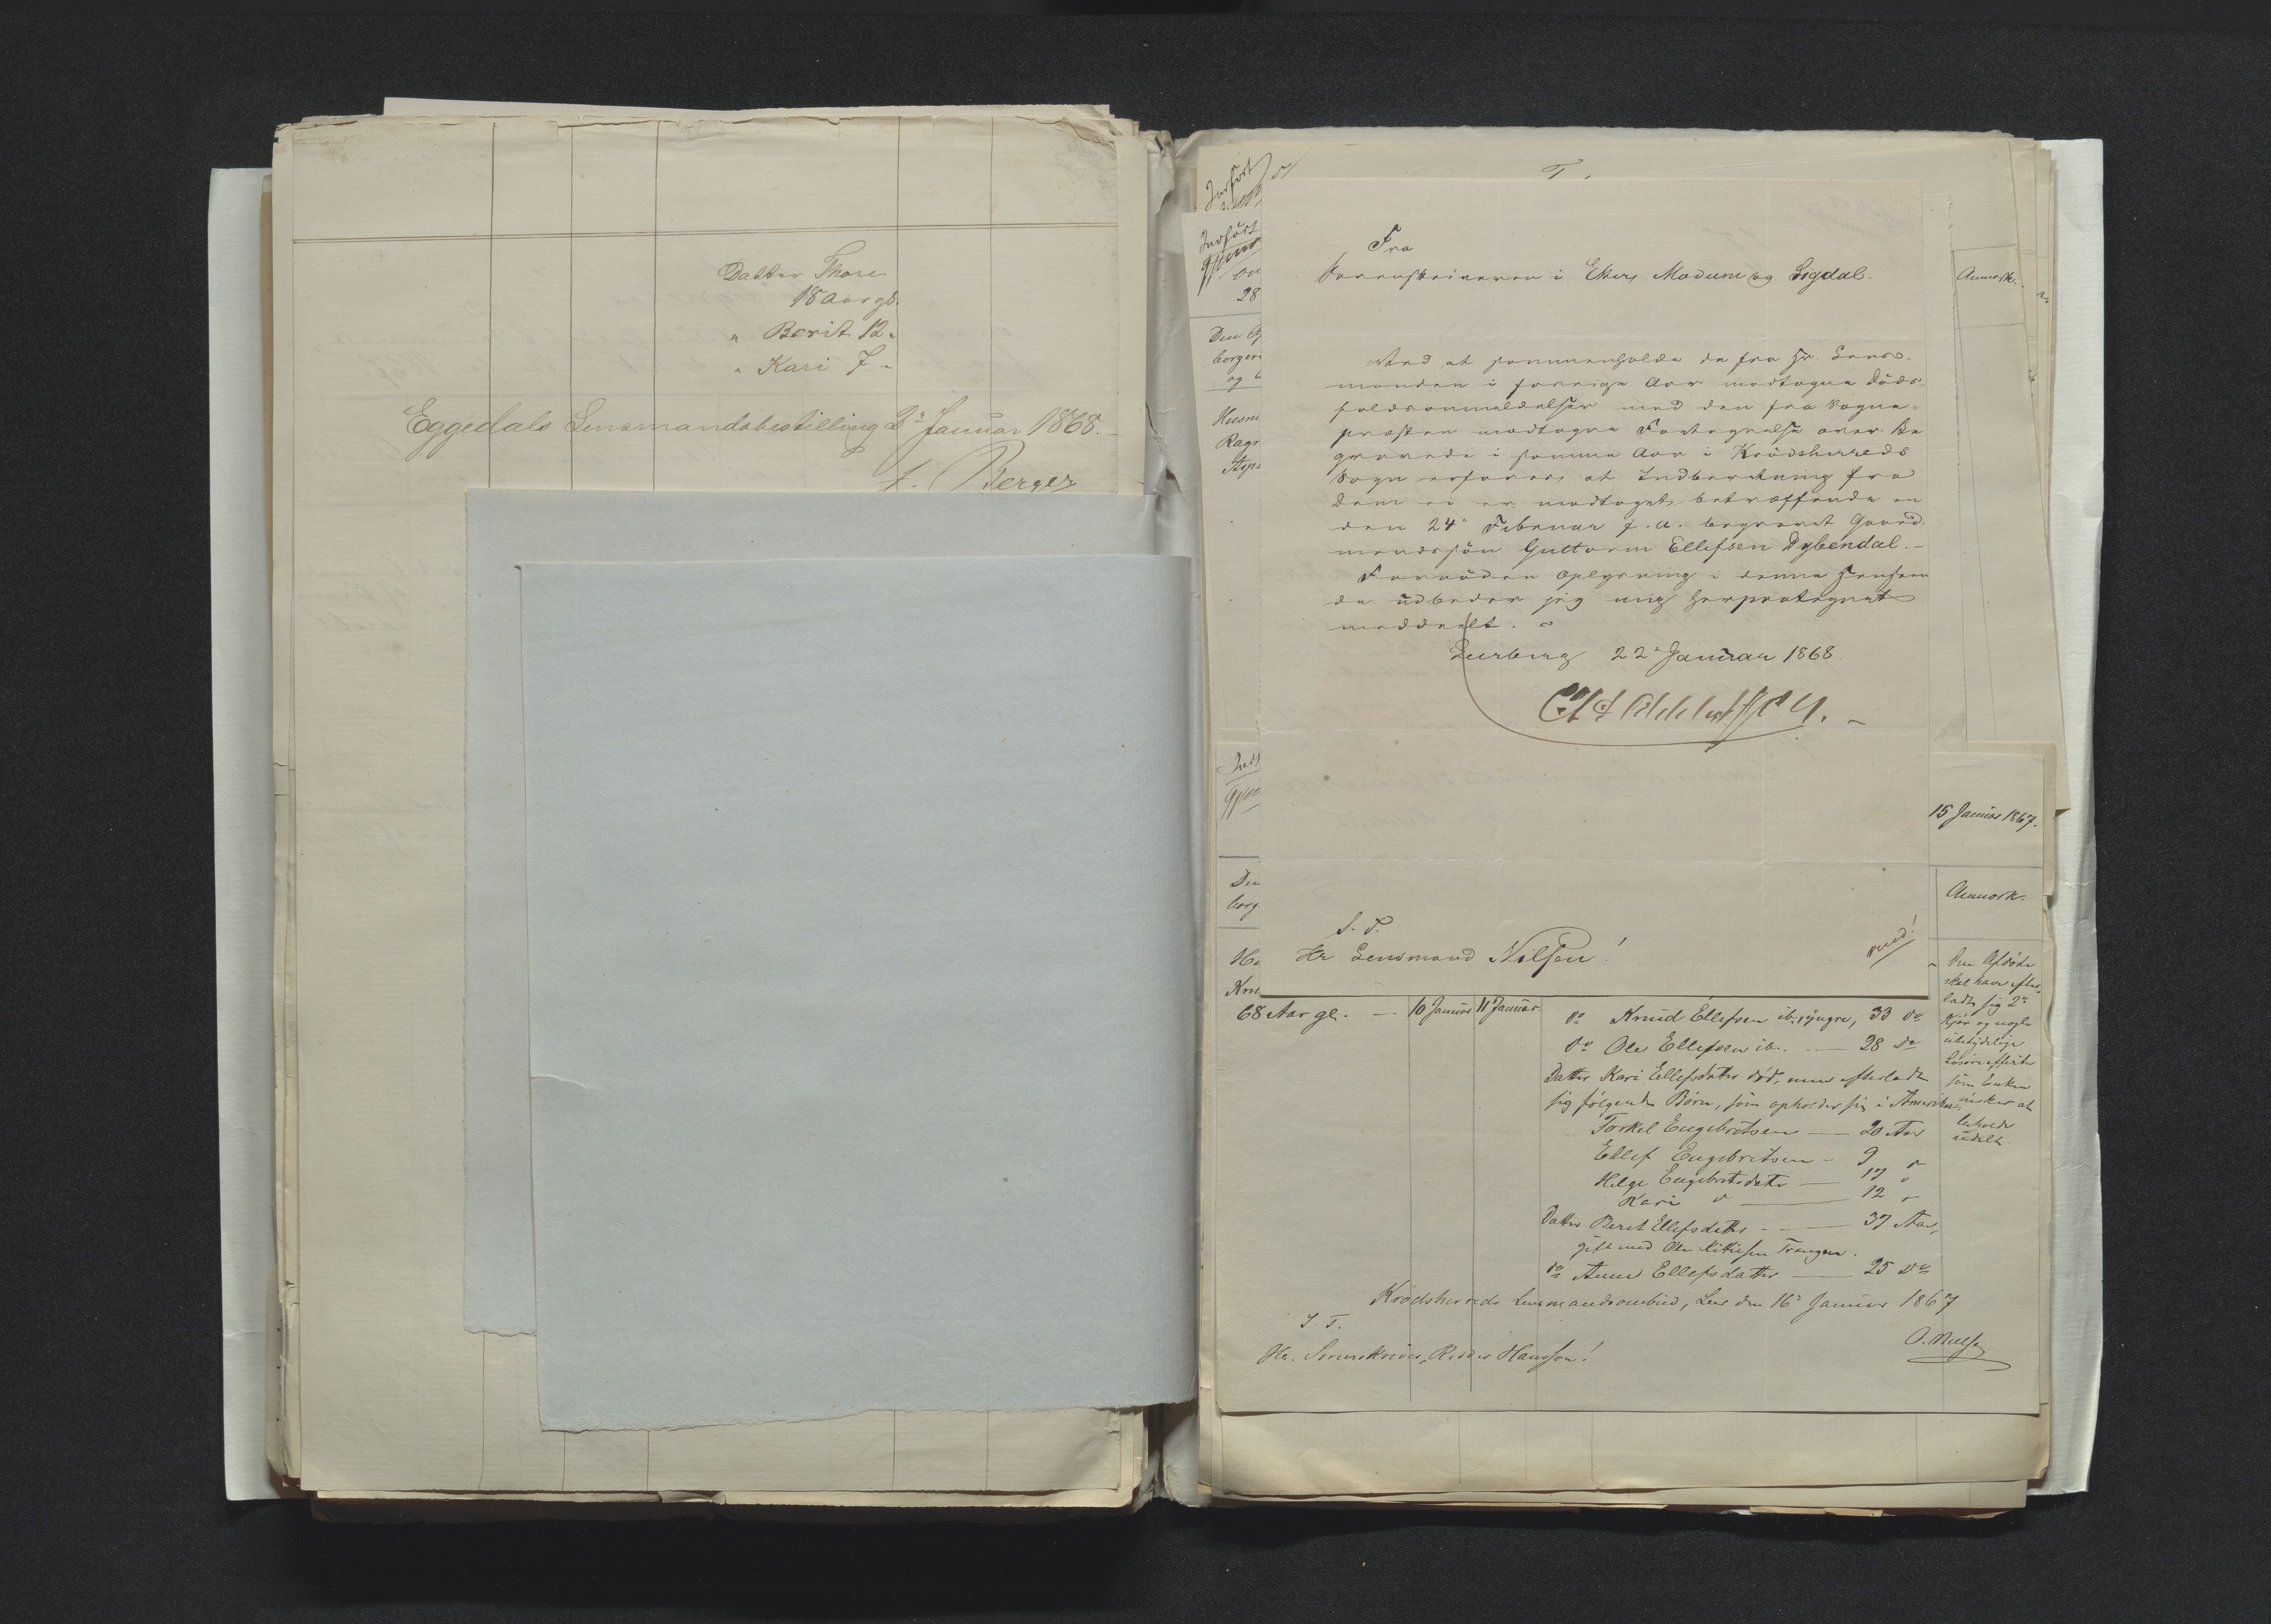 Datter Thore
18 Aar gl.
" Berit 12 "
" Kari 7 "
Eggedals Lensmandsbestilling 2' Januar 1868.
Berger
Indført
Indført
28
Den
borger
og
Husm
Ragn
Anmærk.
Fra
Sorenskriveren i Eker, Modum og Sigdal.
Ved at sammenholde de fra Hr. Lens-
manden i forrige Aar modtagne Döds-
faldsanmeldelser med den fra Sogne-
præsten modtagne Fortegnelse over Be
gravede i samme Aar i Krödsherreds
Sogn erfares at Indberetning fra
Dem ei er modtaget betræffende en
den 24' Februar f. A. begravet Gaard
mandssön Guttorm Ellefsen Dybendal.-
Fornöden Oplysning i denne Henseen
de udbeder jeg mig herpaategnet
meddeelt.
22' Januar 1868.
S. T.
Hr Lensmand Nilsen!
vend!
15 Januar 1867.
Anmærk.
Den
borg
Den Afdöde
skal have efter-
ladt sig 2
Kjör og nogle
ubetydelige
Lösöreeffecter
som Enken
önsker at
beholde
udelt.
68 Aar gl. — 10 Januar 11 Januar
do Knud Ellefsen ib., yngre, 33 do
do Ole Ellefsen ib. — 28 do
Datter Kari Ellefsdatter död, men efterladt
sig fölgende Börn, som opholder sig i Amerika,
Torkel Engebretsen — 20 Aar
Ellef Engebretsen - 9 "
Helge Engebretsdatter — 17 "
Kari " — 12 "
Datter Berit Ellefsdatter — 37 Aar,
gift med Ole
do Anne Ellefsdatter — 25 do
Krödsherreds Lensmandsombud, Lee den 16' Januar 1867
S. T.
O. Nilsen
Hr. Sorenskriver, Ridder Hansson!